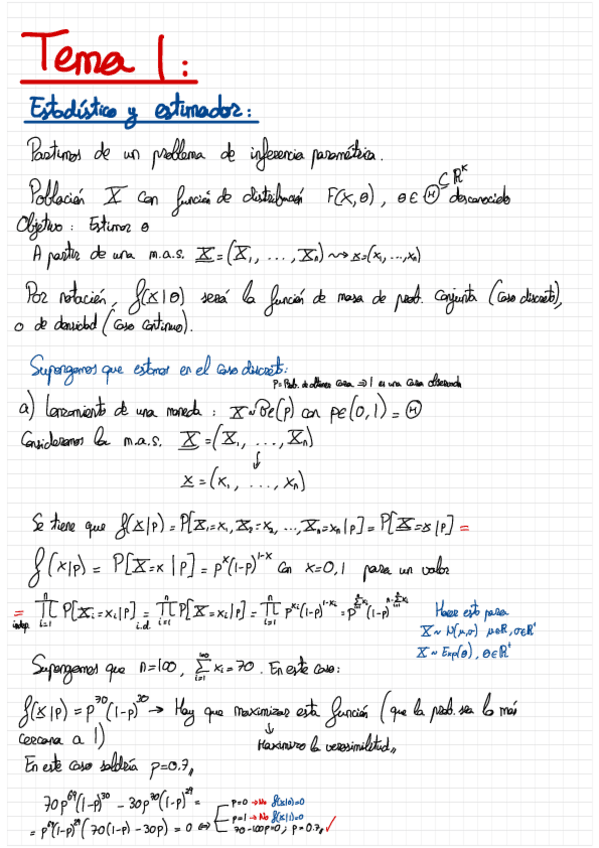 Tema 1:
Estadístico y estimador:
Partimos de un problema de inferencia paramétrica.
Población X con función de distribución F(x,θ), θ∈Θ⊆ℝᵏ desconocido
Objetivo: Estimar θ
A partir de una m.a.s. X=(X₁, ..., Xₙ) ⇝ x=(x₁, ..., xₙ)
Por notación, f(x|θ) será la función de masa de prob. conjunta (caso discreto),
o de densidad (caso continuo).
Supongamos que estamos en el caso discreto:
P=Prob. de obtener cara ⇒ 1 es una cara observada
a) Lanzamiento de una moneda: X~Be(p) con p∈(0,1)=Θ
Consideramos la m.a.s. X=(X₁, ..., Xₙ)
↓
x=(x₁, ..., xₙ)
Se tiene que f(x|p)=P[X₁=x₁,X₂=x₂, ...,Xₙ=xₙ|p]=P[X=x|p] =
f(x|p)=P[X=x|p]=pˣ(1-p)¹⁻ˣ con x=0,1 para un valor
= ∏ᵢ₌₁ⁿ P[Xᵢ=xᵢ|p] = ∏ᵢ₌₁ⁿ P[X=xᵢ|p] = ∏ᵢ₌₁ⁿ p^xᵢ(1-p)^1-xᵢ = p^∑ᵢ₌₁ⁿ xᵢ (1-p)^n-∑ᵢ₌₁ⁿ xᵢ
indep. i.d.
Hacer esto para
X~N(μ,σ) μ∈ℝ, σ∈ℝ⁺
X~Exp(θ), θ∈ℝ⁺
Supongamos que n=100, ∑ᵢ₌₁¹⁰⁰ xᵢ=70. En este caso:
f(x|p)=p⁷⁰(1-p)³⁰ → Hay que maximizar esta función (que la prob. sea lo más
cercana a 1)
↓
Maximizo la verosimilitud,,
En este caso saldría p=0.7,,
70p⁶⁹(1-p)³⁰ - 30p⁷⁰(1-p)²⁹ =
= p⁶⁹(1-p)²⁹(70(1-p)-30p)=0 ⇔
p=0 → No f(x|0)=0
p=1 → No f(x|1)=0
70-100p=0; p=0.7,, ✓